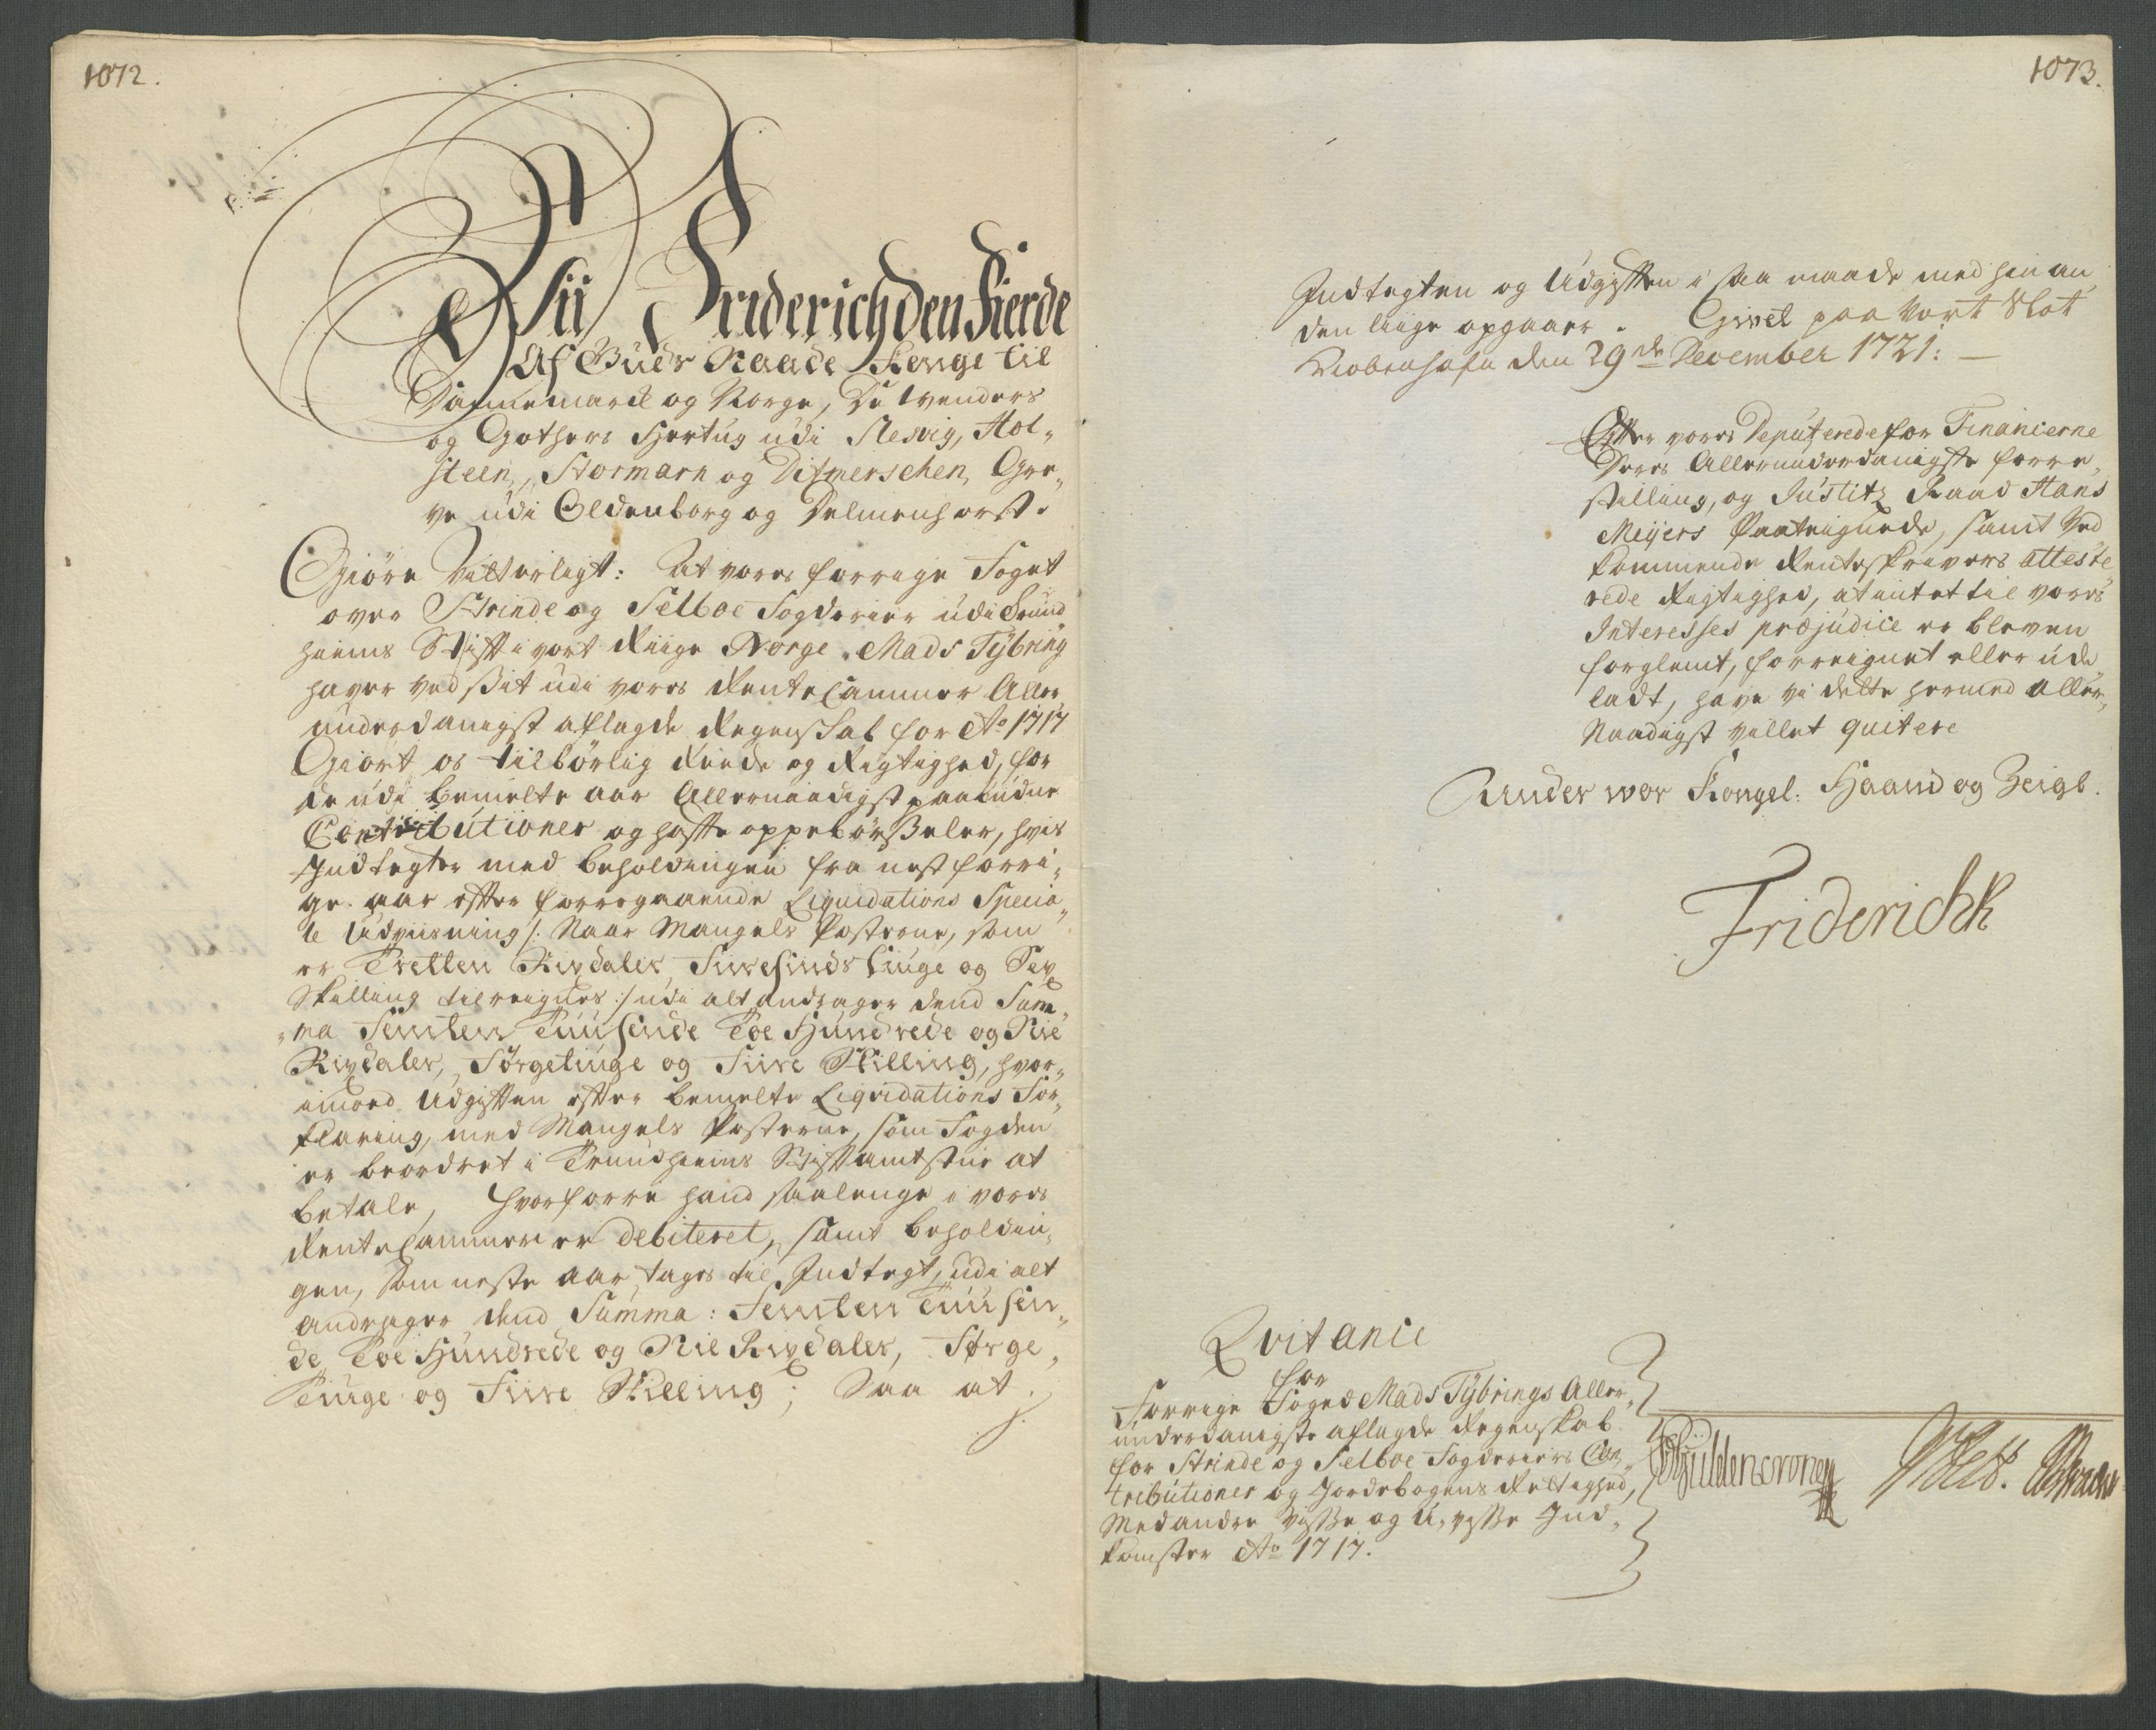 1072.
Wii Friderich den Fierde
Af Guds Naade Konge til
Dannemarck og Norge, De Wenders
og Gothers Hertug udi Slesvig, Hol„
steen, Stormarn og Ditmerschen, Gre„
ve udi Oldenborg og Delmenhorst.
Giöre Vitterligt: At vores forrige Foget
over Strinde og Selboe Fogderier udi Trund
hiems Stift i vort Riige Norge. Mads Tÿbring
haver ved sit udi vores RenteCammer Aller
underdanigst aflagde Regenskab for Ao 1717
Giort os tilbörlig Reede og Rigtighed, for
de udi bemelte aar Allernaadigst paabudne
Contributioner og hafte oppebörßeler, hvis
Indtegter med beholdningen fra nest forri„
ge aar efter foregaaende Liquidations Specia„
le Udviisning /: Naar Mangels Posterne, som
er Tretten Rixdaler Firesinds tiuge og Sex
Skilling tilreignes :/ udi alt andrager dend Sum„
„ma Femten Tuusinde Toe Hundrede og Nie
Rixdaler, Förgetiuge og Fiire Skilling, hvor„
imod Udgiften efter bemelte Liqvidations For„
klaring, med Mangels Posterne, som Fogden
er beordret i Trundhiems Stiftamtstue at
betale, hvorforre hand saalenge i vores
RenteCammer er debiteret, samt beholdnin„
gen, som neste aar tages til Indtegt, udi alt
andrager dend Summa: Femten Tuusin„
de Toe Hundrede og Nie Rixdaler, Förge„
Tiuge og Fiire Skilling; Saa at
1073.
Indtegten og Udgiften i saa maade med hin an„
den liige opgaaer. Givet paa Vort Slot
Kiöbenhafn den 29de December 1721: —
Efter vores Deputerede for Financerne
Deres Allerunderdanigste forre„
stilling, og Justitz Raad Hans
Meÿers Paateignede, samt Ved
kommende Renteskrivers atteste
rede Rigtighed, at intet til vores
Interesses præjudice er bleven
forglemt, forreignet eller ude„
ladt, have Vi dette hermed Aller„
Naadigst villet quitere
Under vor Kongel: Haand og Zeigl.
Friderich R
Qvitance
for
Forrige Foged Mads Tÿbrings Aller„
underdanigste aflagde Regenskab
for Strinde og Selboe Fogderiers Con„
tributioner og Jordebogens Rettighed,
Med andre Visse og U„visse Ind„
komster Ao 1717.
Güldencrone